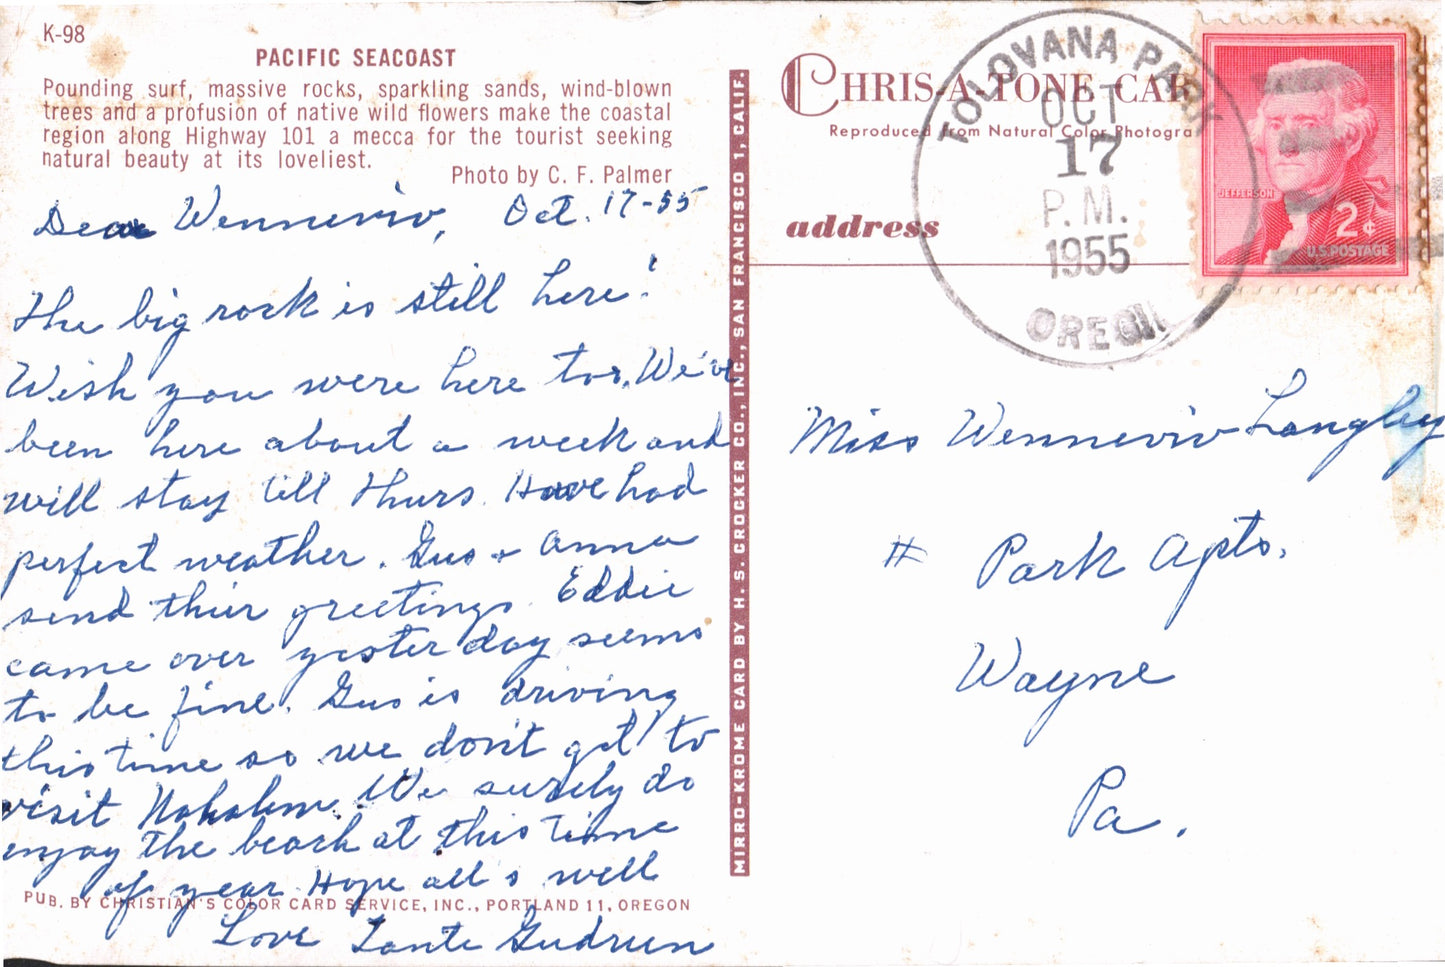 K-98
PACIFIC SEACOAST
Pounding surf, massive rocks, sparkling sands, wind-blown
trees and a profusion of native wild flowers make the coastal
region along Highway 101 a mecca for the tourist seeking
natural beauty at its loveliest.
Photo by C. F. Palmer
Dear Wenneviv, Oct. 17-55
The big rock is still here!
Wish you were here too. We've
been here about a week and
will stay till Thurs. Have had
perfect weather. Gus + Anna
send their greetings. Eddie
came over yesterday seems
to be fine. Gus is driving
this time so we don't get to
visit Nehalem. We surely do
enjoy the beach at this time
of year. Hope all's well
Love Tante Gudrun
PUB. BY CHRISTIAN'S COLOR CARD SERVICE, INC., PORTLAND 11, OREGON
MIRRO-KROME CARD BY H. S. CROCKER CO., INC., SAN FRANCISCO 1, CALIF.
CHRIS-A-TONE CAR
Reproduced from Natural Color Photogra
address
TOLOVANA PARK
OCT
17
P.M.
1955
OREGON
JEFFERSON
2¢
U.S. POSTAGE
Miss Wenneviv Langley
# Park Apts.
Wayne
Pa.